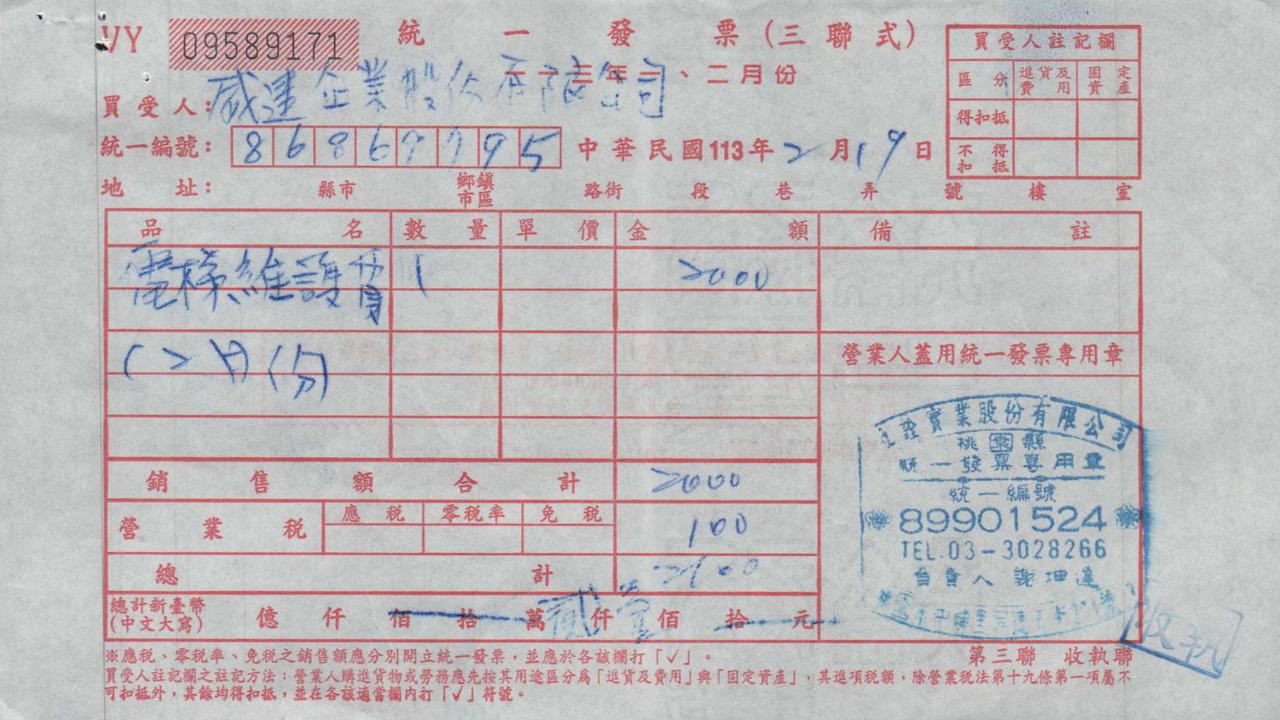 VY 09589171 統一發票(三聯式)
一一三年一、二月份
買受人: 威達企業股份有限公司
統一編號: 86867795 中華民國113年2月19日
地址: 縣市 鄉鎮市區 路街 段 巷 弄 號 樓 室
買受人註記欄
區分 進貨及費用 固定資產
得扣抵
不得扣抵
品名 數量 單價 金額 備註
電梯維護費 1 2000
(2月份)
營業人蓋用統一發票專用章
銷售額合計 2000
應稅 零稅率 免稅
營業稅 100
總計 2100
總計新臺幣(中文大寫) 億 仟 佰 拾 萬 貳 仟 壹 佰 拾 元
實業股份有限公司
桃園縣
統一發票專用章
統一編號
89901524
TEL.03-3028266
負責人 謝坤達
收執
第三聯 收執聯
※應稅、零稅率、免稅之銷售額應分別開立統一發票,並應於各該欄打「✓」。
買受人註記欄之註記方法:營業人購進貨物或勞務應先按其用途區分為「進貨及費用」與「固定資產」,其進項稅額,除營業稅法第十九條第一項屬不
可扣抵外,其餘均得扣抵,並在各該適當欄內打「✓」符號。